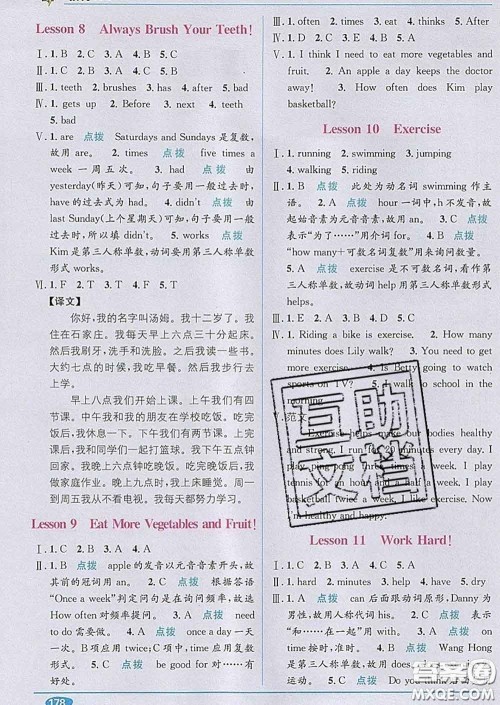 Lesson 8 Always Brush Your Teeth!
Ⅰ. 1. B 2. C 3. A 4. B 5. B
Ⅱ. 1. teeth 2. brushes 3. has 4. after 5. bad
Ⅲ. 1. gets up 2. Before 3. next 4. teeth
5. bad
Ⅴ. 1. are 点拨 Saturdays and Sundays 是复数,
故用 are. 2. times 点拨 five times a
week 一周五次。 3. had 点拨 由
yesterday(昨天)可知,句子要用一般过去时,
have 的过去式为 had. 4. didn't 点拨 由
last Sunday(上个星期天)可知,句子要用一般
过去时,所以填 didn't. 5. works 点拨
Kim 是第三人称单数,动词要用第三人称单数
形式 works.
Ⅵ. 1. F 2. T 3. T 4. F 5. F
【译文】
你好,我的名字叫汤姆。我十二岁了。我
住在石家庄。我每天早上六点三十分起床。
然后我刷牙,洗手和洗脸。之后我读一些书。
大约七点的时候,我吃早餐。然后我去学校。
早上八点我们开始上课。上午我们有四
节课。中午我和我的朋友在学校吃饭。吃完
饭后,我休息一下。下午我们有四节课。下课
后,我和同学们一起打篮球。我下午五点半回
家。我晚上六点钟吃晚饭。吃完晚饭后,我
做家庭作业。晚上九点时,我上床睡觉。周一
到周五我从不看电视。我每天努力学习。
Lesson 9 Eat More Vegetables and Fruit!
Ⅰ. 1. C 2. B 3. A 4. A
Ⅱ. 1. B 点拨 apple 的发音以元音音素开头,故
其前的冠词用 an. 2. C 点拨 根据答语
"Once a week"判定问句是在询问频率,故用
How often 对频率提问。 3. A 点拨 need
to 需要做。 4. A 点拨 once a day 一天一
次。B 项应改为 twice;C 项中, time 应用复数
形式。 5. C 点拨 be good for 对……有
好处。
178
Ⅲ. 1. often 2. times 3. eat 4. thinking 5. away
Ⅳ. D E A C B
Ⅴ. 1. I think I need to eat more vegetables and
fruit. 2. An apple a day keeps the doctor
away! 3. How often does Kim play
basketball?
Lesson 10 Exercise
Ⅰ. 1. running 2. swimming 3. jumping
4. walking 5. riding
Ⅱ. 1. A 点拨 此处为动名词 swimming 作主
语。 2. A 点拨 hour 一词中,h 不发音,故
起始音素为元音音素,故用 an. 3. C 点拨
表示"为了……"用介词 for. 4. C 点拨
"how many+可数名词复数"用来询问数量。
5. A 点拨 exercise 是不可数名词,故视为
第三人称单数,故此处动词用第三人称单数
Ⅳ. 1. Riding a bike is exercise. 2. How many
minutes does Lily walk? 3. You need to get
more exercise. 4. Is Betty going to watch
sports on TV? 5. I walk to school in the
morning.
Ⅴ. 范文
Exercise helps make our bodies healthy
and strong. I run for 20 minutes every day. I
play ping-pong three times a week. I play
tennis for half an hour and swim. I play
basketball twice a week. I like exercise.
I'm happy and healthy.
Lesson 11 Work Hard!
Ⅰ. 1. B 2. A 3. C 4. B 5. A
Ⅱ. 1. hard 2. help 3. had 4. minutes 5. ready
Ⅲ. 1. A 点拨 can 后面跟动词原形,Danny 为
男性,故用人称代词 his. 2. C 点拨 "和
……在一起"用 with. 3. A 点拨 on
time 按时,准时。 4. B 点拨 Wang Hong
是第三人称单数,故用第三人称单数形式。
5. C 点拨 Do you think
互助
文档
答案圈
MXQE.COM